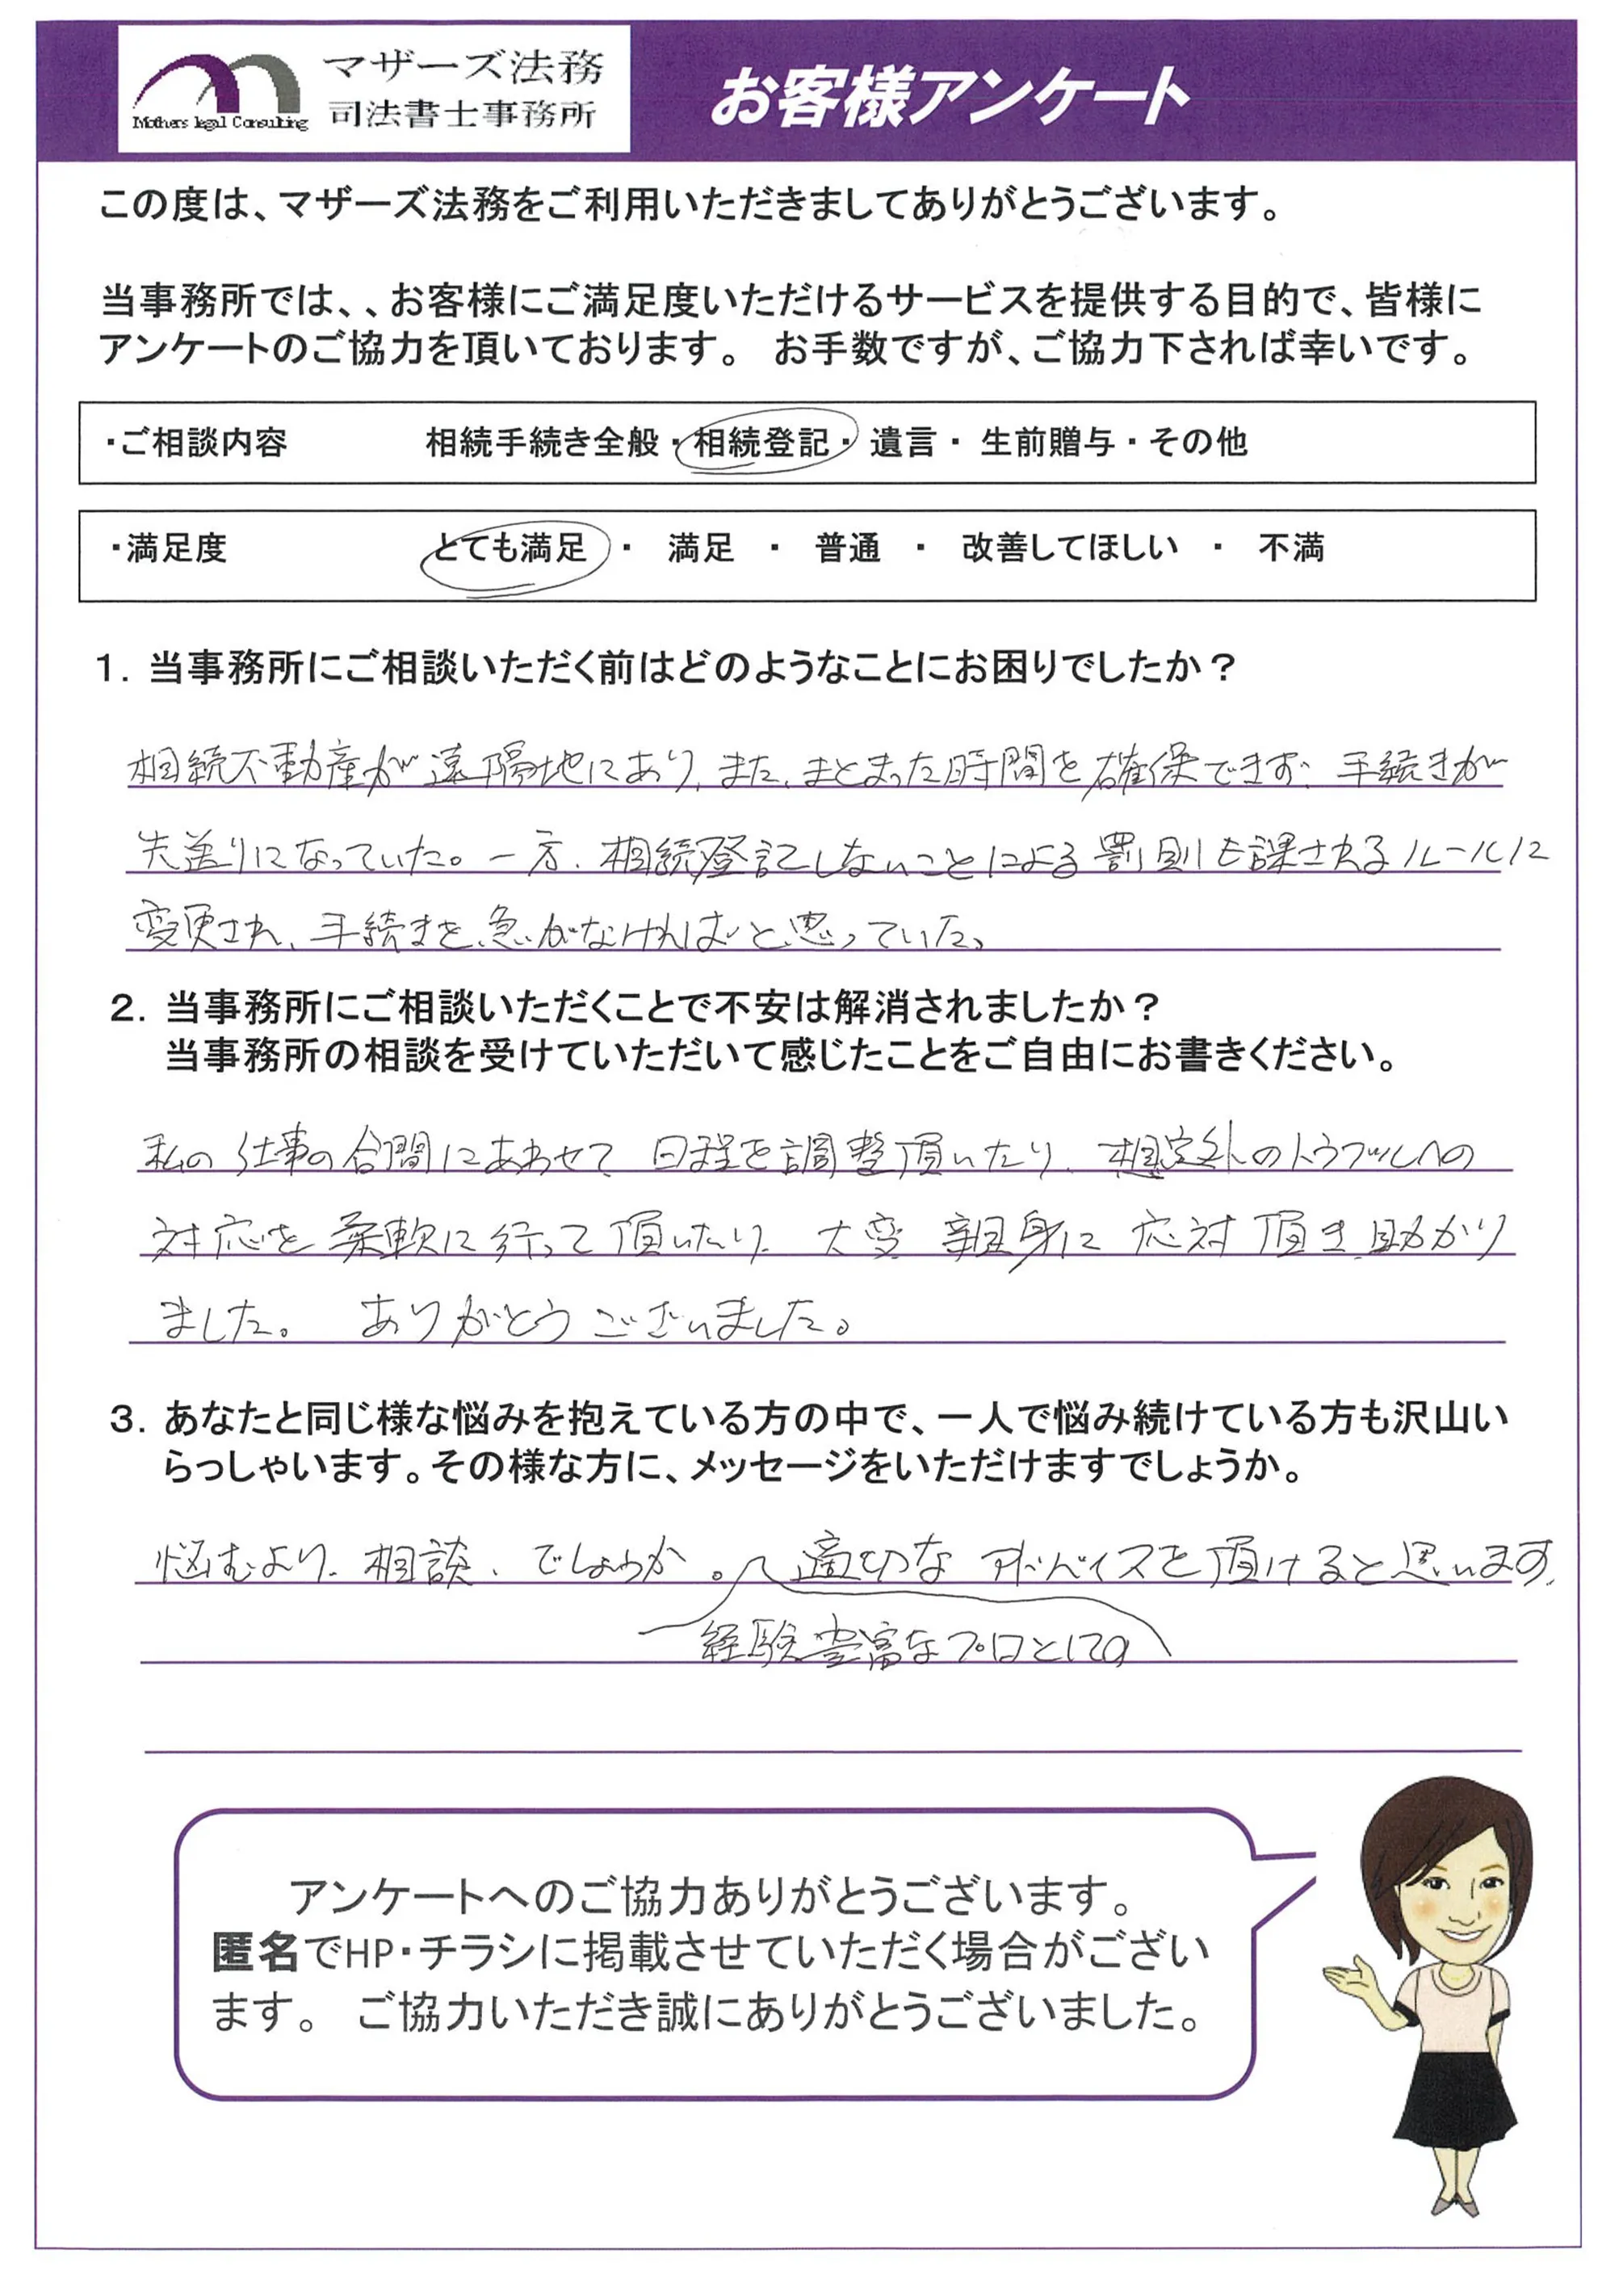 マザーズ法務
司法書士事務所
Mothers legal Consulting
お客様アンケート
この度は、マザーズ法務をご利用いただきましてありがとうございます。
当事務所では、、お客様にご満足度いただけるサービスを提供する目的で、皆様に
アンケートのご協力を頂いております。 お手数ですが、ご協力下されば幸いです。
・ご相談内容 相続手続き全般・相続登記・遺言・生前贈与・その他
・満足度 とても満足 ・ 満足 ・ 普通 ・ 改善してほしい ・ 不満
1. 当事務所にご相談いただく前はどのようなことにお困りでしたか？
相続不動産が遠隔地にあり、また、まとまった時間を確保できず、手続きが
先送りになっていた。一方、相続登記しないことによる罰則も課されるルールに
変更され、手続きを急がなければと思っていた。
2. 当事務所にご相談いただくことで不安は解消されましたか？
当事務所の相談を受けていただいて感じたことをご自由にお書きください。
私の仕事の合間にあわせて日程を調整頂いたり、想定外のトラブルへの
対応を柔軟に行って頂いたり、大変親身に応対頂き助かり
ました。 ありがとうございました。
3. あなたと同じ様な悩みを抱えている方の中で、一人で悩み続けている方も沢山い
らっしゃいます。その様な方に、メッセージをいただけますでしょうか。
悩むより、相談、でしょうか。適切なアドバイスを頂けると思います。
経験豊富なプロとしての
アンケートへのご協力ありがとうございます。
匿名でHP・チラシに掲載させていただく場合がござい
ます。 ご協力いただき誠にありがとうございました。